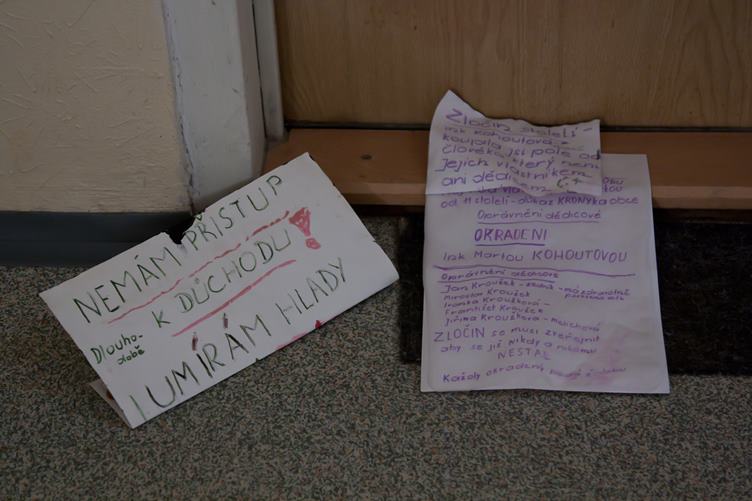 NEMÁM PŘÍSTUP
K DŮCHODU!
Dlouho-
době
I UMÍRÁM HLADY
Zločin století -
Ink Kohoutová -
koupila jsi pole od
člověka, který není
jejich vlastníkem
ani dědicem
od 11 století - důkaz KRONYKA obce
Oprávnění dědicové
OKRADENI
Ink Martou KOHOUTOVOU
Oprávnění dědicové
Jan Kroužek -
Miroslav Kroužek
Ivanka Kroužková -
František Kroužek
Jiřina Kroužková -
ZLOČIN se musí zveřejnit
aby se již nikdy a nikomu
NESTAL
Každý okradený